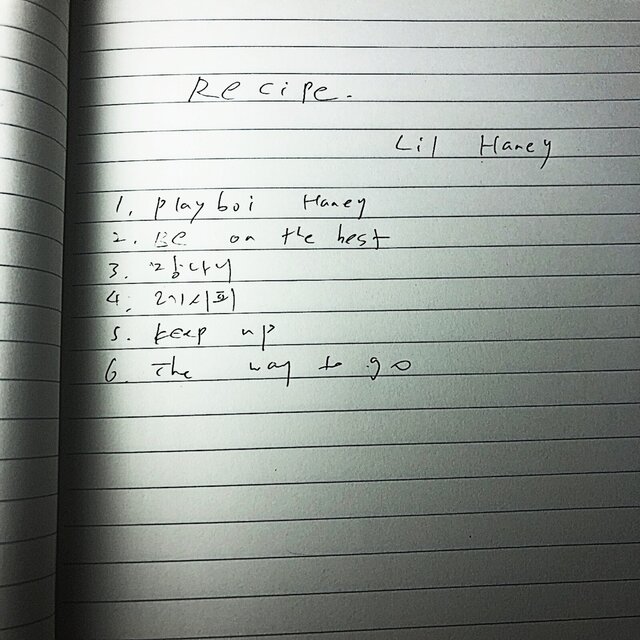 Recipe.
Lil Haney
1. playboi Haney
2. BE on the best
3.
4.
5. keep up
6. The way to go